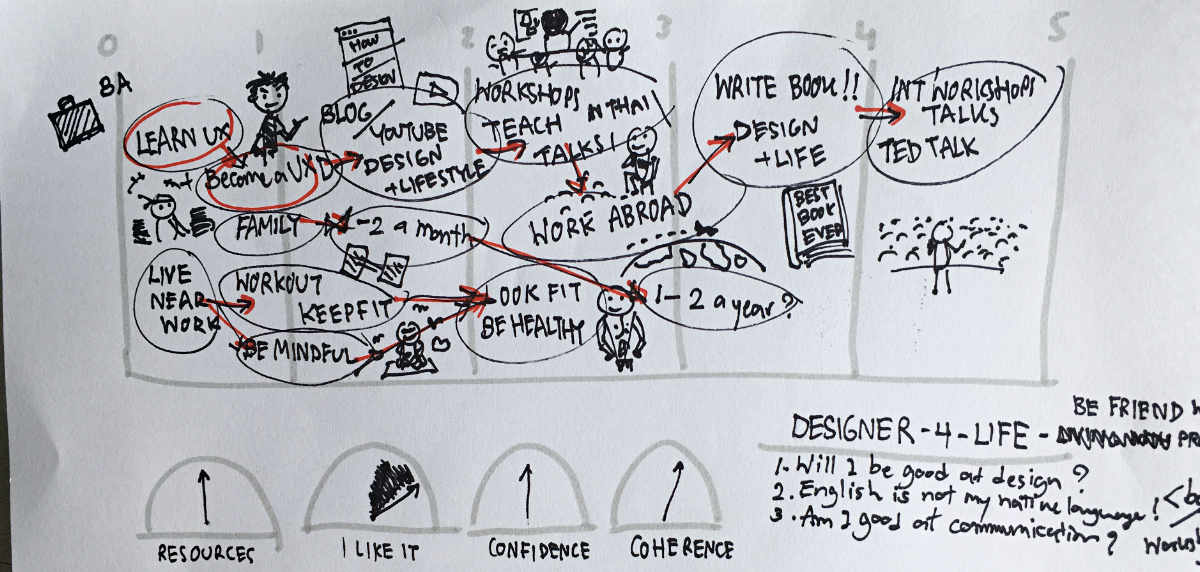 0 1 2 3 4 5
BA
LEARN UX
Become a UXD
HOW
TO
DESIGN
BLOG/
YOUTUBE
DESIGN
+LIFESTYLE
WORKSHOPS
TEACH IN THAI
TALKS!
WORK ABROAD
WRITE BOOK!!
DESIGN
+LIFE
INT' WORKSHOPS
TALKS
TED TALK
BEST
BOOK
EVER
FAMILY
1-2 a month
1-2 a year?
LIVE
NEAR
WORK
WORKOUT
KEEPFIT
BE MINDFUL
LOOK FIT
BE HEALTHY
RESOURCES
I LIKE IT
CONFIDENCE
COHERENCE
BE FRIEND
DESIGNER-4-LIFE-
1. Will I be good at design?
2. English is not my native language!
3. Am I good at communication?